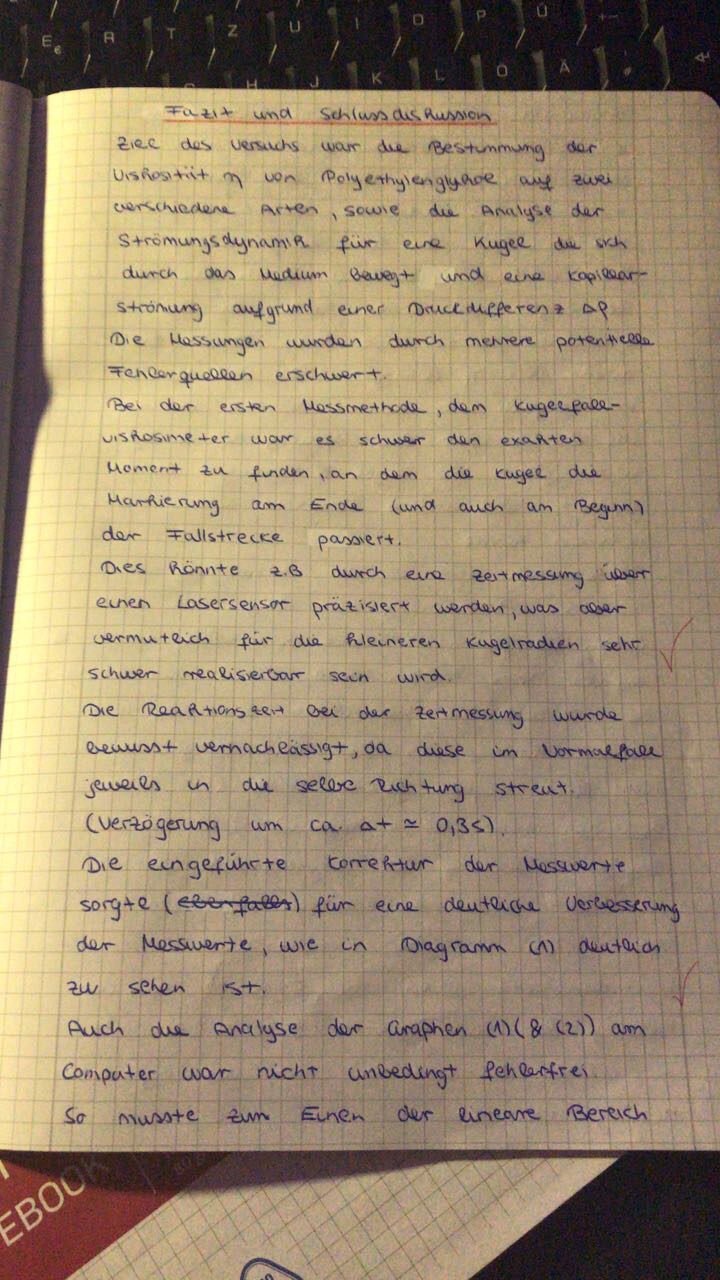 E €
R
T
Z
U
I
O
P
Ü
H
J
K
L
Ö
Ä
Fazit und Schlussdiskussion
Ziel des Versuchs war die Bestimmung der
Viskosität η von Polyethylenglykol auf zwei
verschiedene Arten, sowie die Analyse der
Strömungsdynamik für eine Kugel die sich
durch das Medium bewegt und eine Kapillar-
strömung aufgrund einer Druckdifferenz Δp
Die Messungen wurden durch mehrere potentielle
Fehlerquellen erschwert.
Bei der ersten Messmethode, dem Kugelfall-
viskosimeter war es schwer den exakten
Moment zu finden, an dem die Kugel die
Markierung am Ende (und auch am Beginn)
der Fallstrecke passiert.
Dies könnte z.B durch eine Zeitmessung über
einen Lasersensor präzisiert werden, was aber
vermutlich für die kleineren Kugelradien sehr
schwer realisierbar sein wird.
Die Reaktionszeit bei der Zeitmessung wurde
bewusst vernachlässigt, da diese im Normalfall
jeweils in die selbe Richtung streut.
(Verzögerung um ca. Δt ≃ 0,3s).
Die eingeführte Korrektur der Messwerte
sorgte (ebenfalls) für eine deutliche Verbesserung
der Messwerte, wie in Diagramm (1) deutlich
zu sehen ist.
Auch die Analyse der Graphen (1)(& (2)) am
Computer war nicht unbedingt fehlerfrei.
So musste zum Einen der lineare Bereich
EBOOK